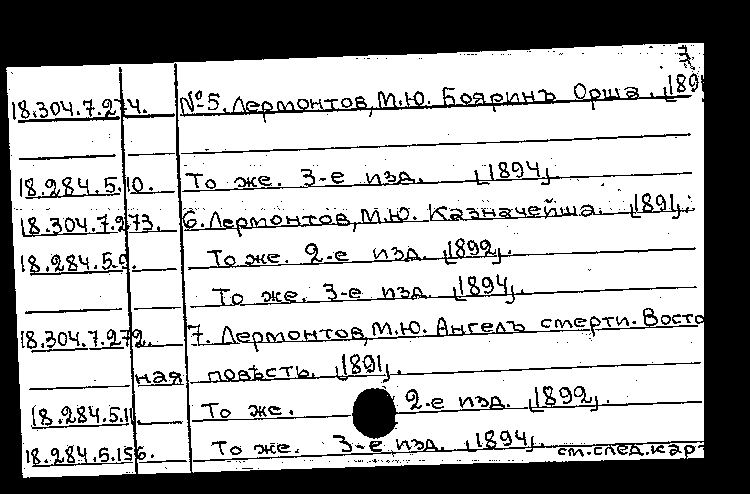 18.304.7.274. №5. Лермонтов, М.Ю. Бояринъ Орша. [189
18.284.5.10. То же. 3-е изд. [1894].
18.304.7.273. 6. Лермонтов, М.Ю. Казначейша. [1891].
18.284.5.9. То же. 2-е изд. [1892].
То же. 3-е изд. [1894].
18.304.7.272. 7. Лермонтов, М.Ю. Ангелъ смерти. Восто
ная повѣсть. [1891].
18.284.5.11. То же. 2-е изд. [1892].
18.284.5.156. То же. 3-е изд. [1894].
см.след.кар